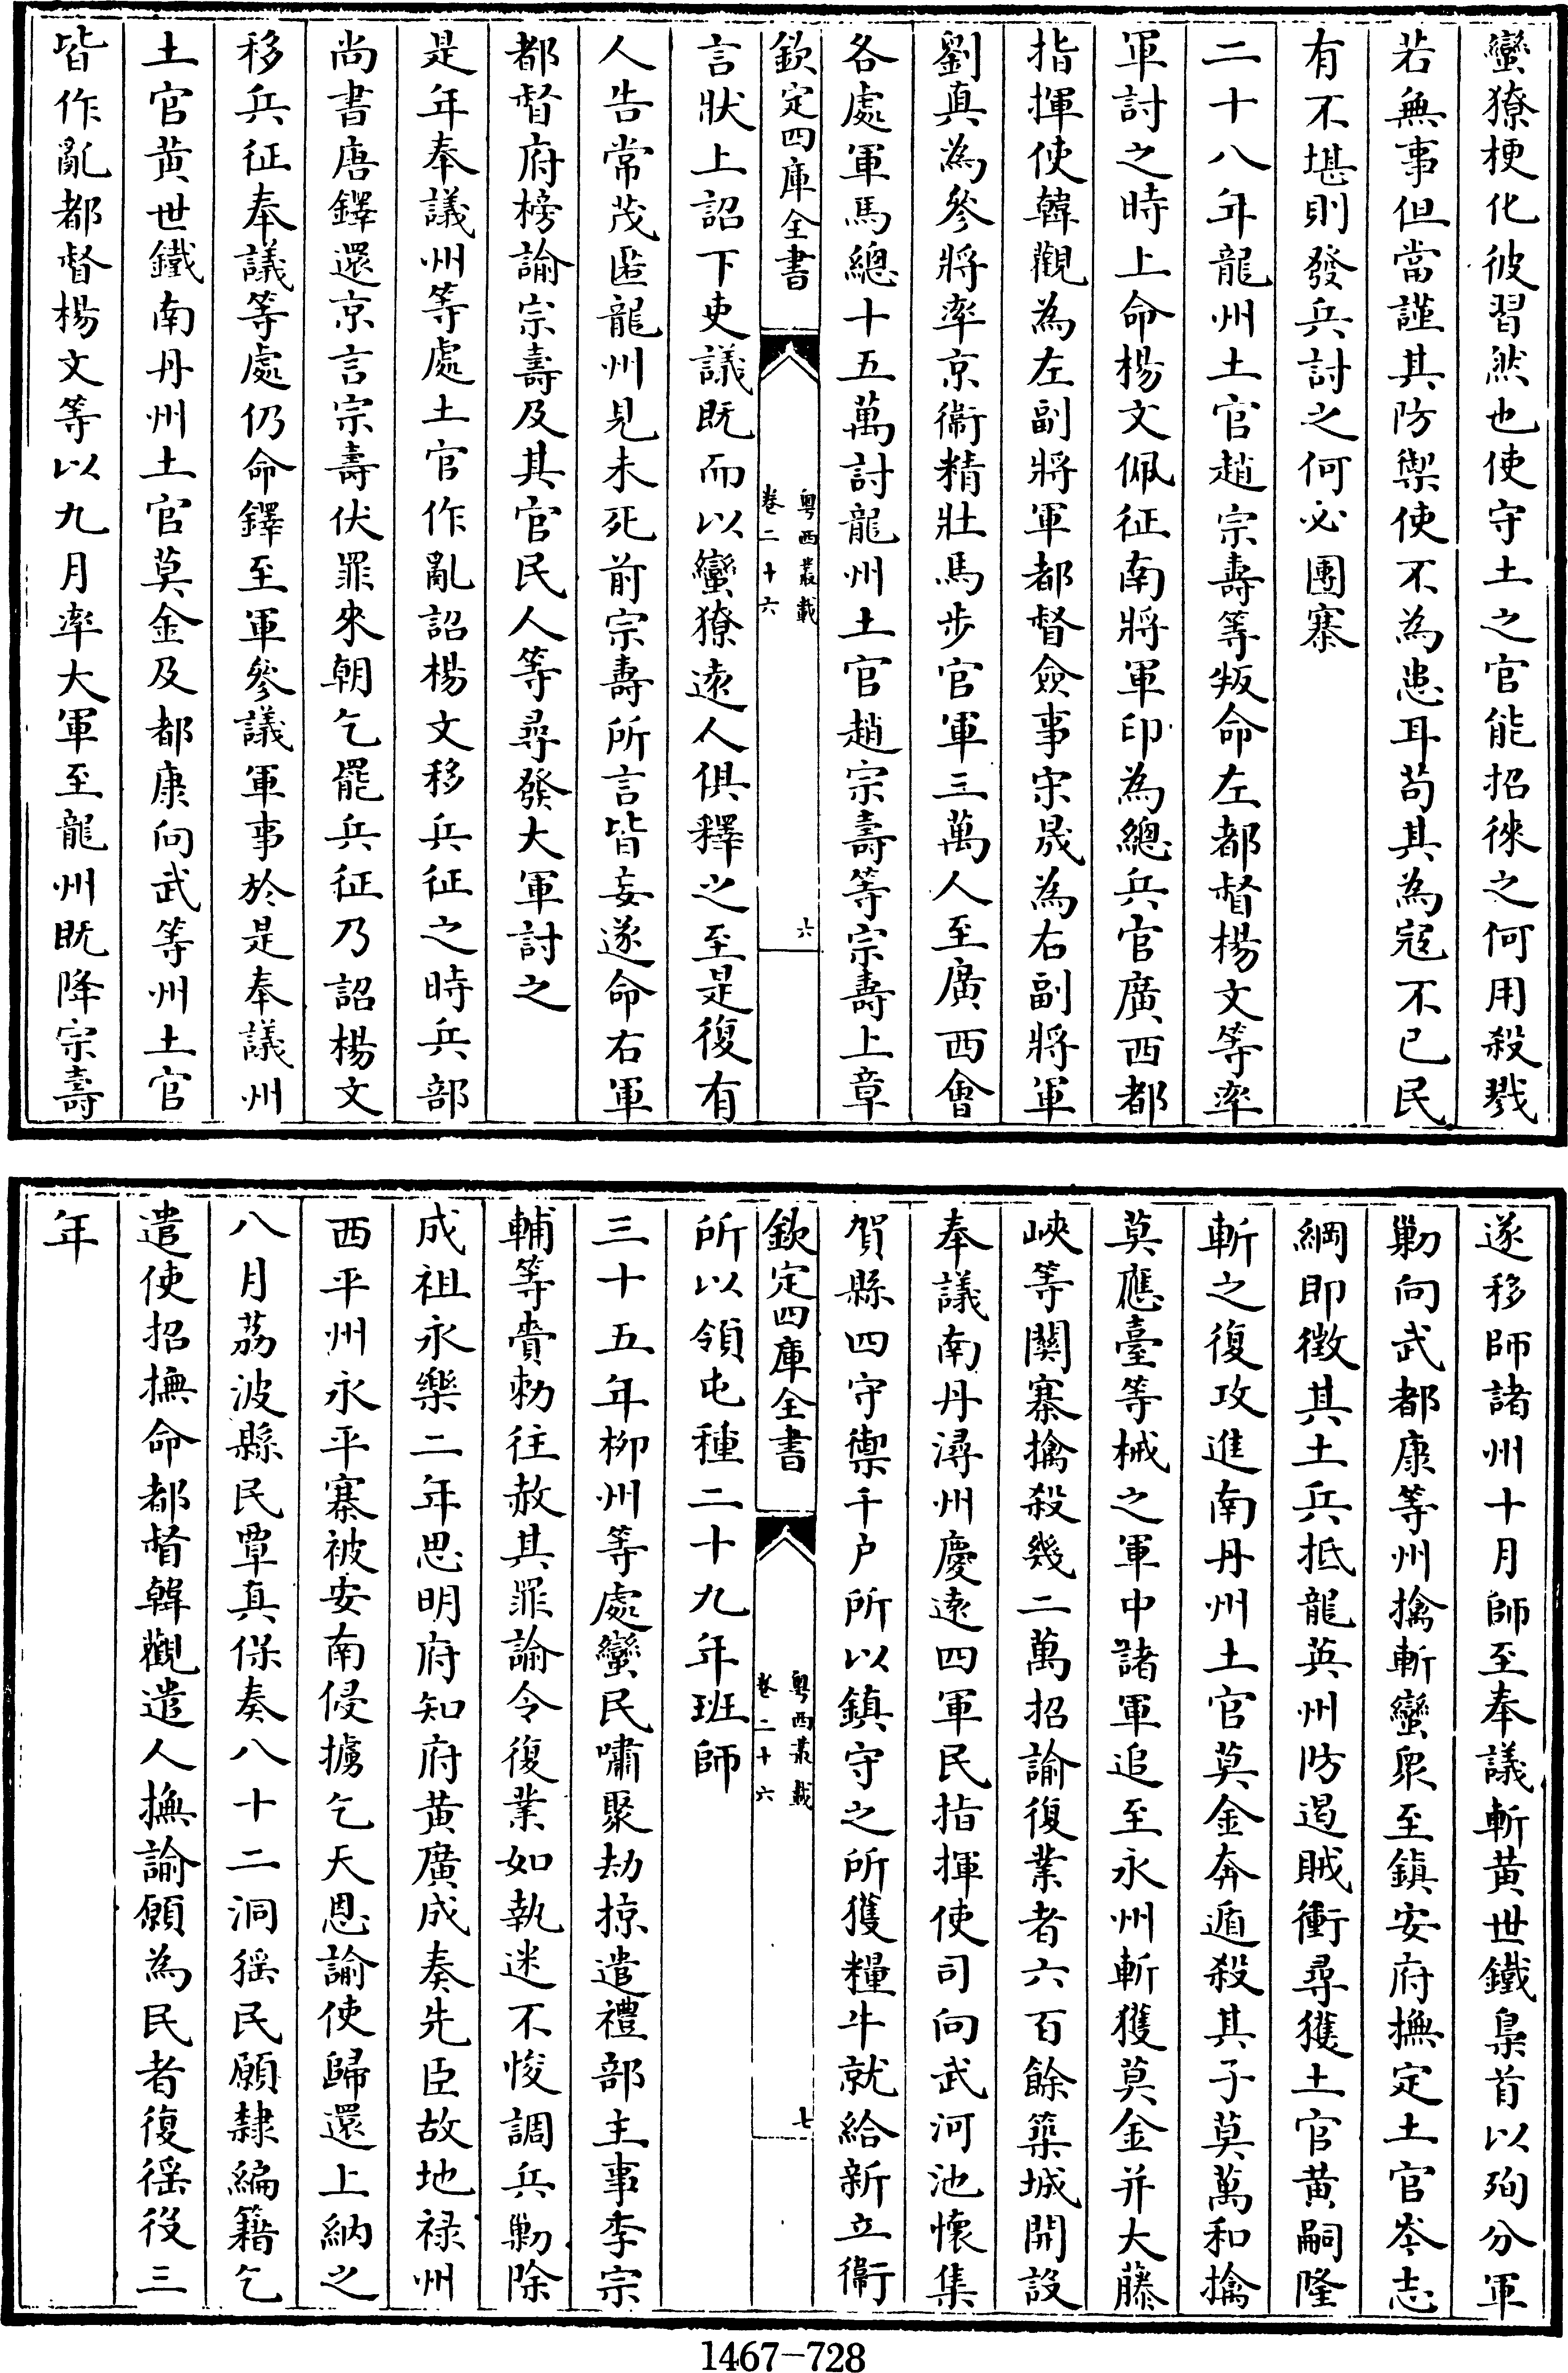 蠻獠梗化彼習然也使守土之官能招徠之何用殺戮
若無事但當謹其防禦使不為患耳苟其為寇不已民
有不堪則發兵討之何必團寨
二十八年龍州土官趙宗壽等叛命左都督楊文等率
軍討之時上命楊文佩征南將軍印為總兵官廣西都
指揮使韓觀為左副將軍都督僉事宋晟為右副將軍
劉真為參將率京衞精壯馬步官軍三萬人至廣西會
各處軍馬總十五萬討龍州土官趙宗壽等宗壽上章
欽定四庫全書
粤西叢載
卷二十六
六
言狀上詔下吏議既而以蠻獠逺人俱釋之至是復有
人告常茂匿龍州見未死前宗壽所言皆妄遂命右軍
都督府榜諭宗壽及其官民人等尋發大軍討之
是年奉議州等處土官作亂詔楊文移兵征之時兵部
尚書唐鐸還京言宗壽伏罪來朝乞罷兵征乃詔楊文
移兵征奉議等處仍命鐸至軍參議軍事於是奉議州
土官黄世鐵南丹州土官莫金及都康向武等州土官
皆作亂都督楊文等以九月率大軍至龍州既降宗壽
遂移師諸州十月師至奉議斬黄世鐵梟首以殉分軍
勦向武都康等州擒斬蠻衆至鎮安府撫定土官岑志
綱即徴其土兵抵龍英州防遏賊衝尋獲土官黄嗣隆
斬之復攻進南丹州土官莫金奔遁殺其子莫萬和擒
莫應臺等械之軍中諸軍追至永州斬獲莫金并大藤
峽等闗寨擒殺幾二萬招諭復業者六百餘築城開設
奉議南丹潯州慶逺四軍民指揮使司向武河池懷集
賀縣四守禦千户所以鎮守之所獲糧牛就給新立衞
欽定四庫全書
粤西叢載
卷二十六
七
所以領屯種二十九年班師
三十五年栁州等處蠻民嘯聚劫掠遣禮部主事李宗
輔等賫勅往赦其罪諭令復業如執迷不悛調兵勦除
成祖永樂二年思明府知府黄廣成奏先臣故地禄州
西平州永平寨被安南侵擄乞天恩諭使歸還上納之
八月荔波縣民覃真保奏八十二洞猺民願隸編籍乞
遣使招撫命都督韓觀遣人撫諭願為民者復徭役三
年
1467-728